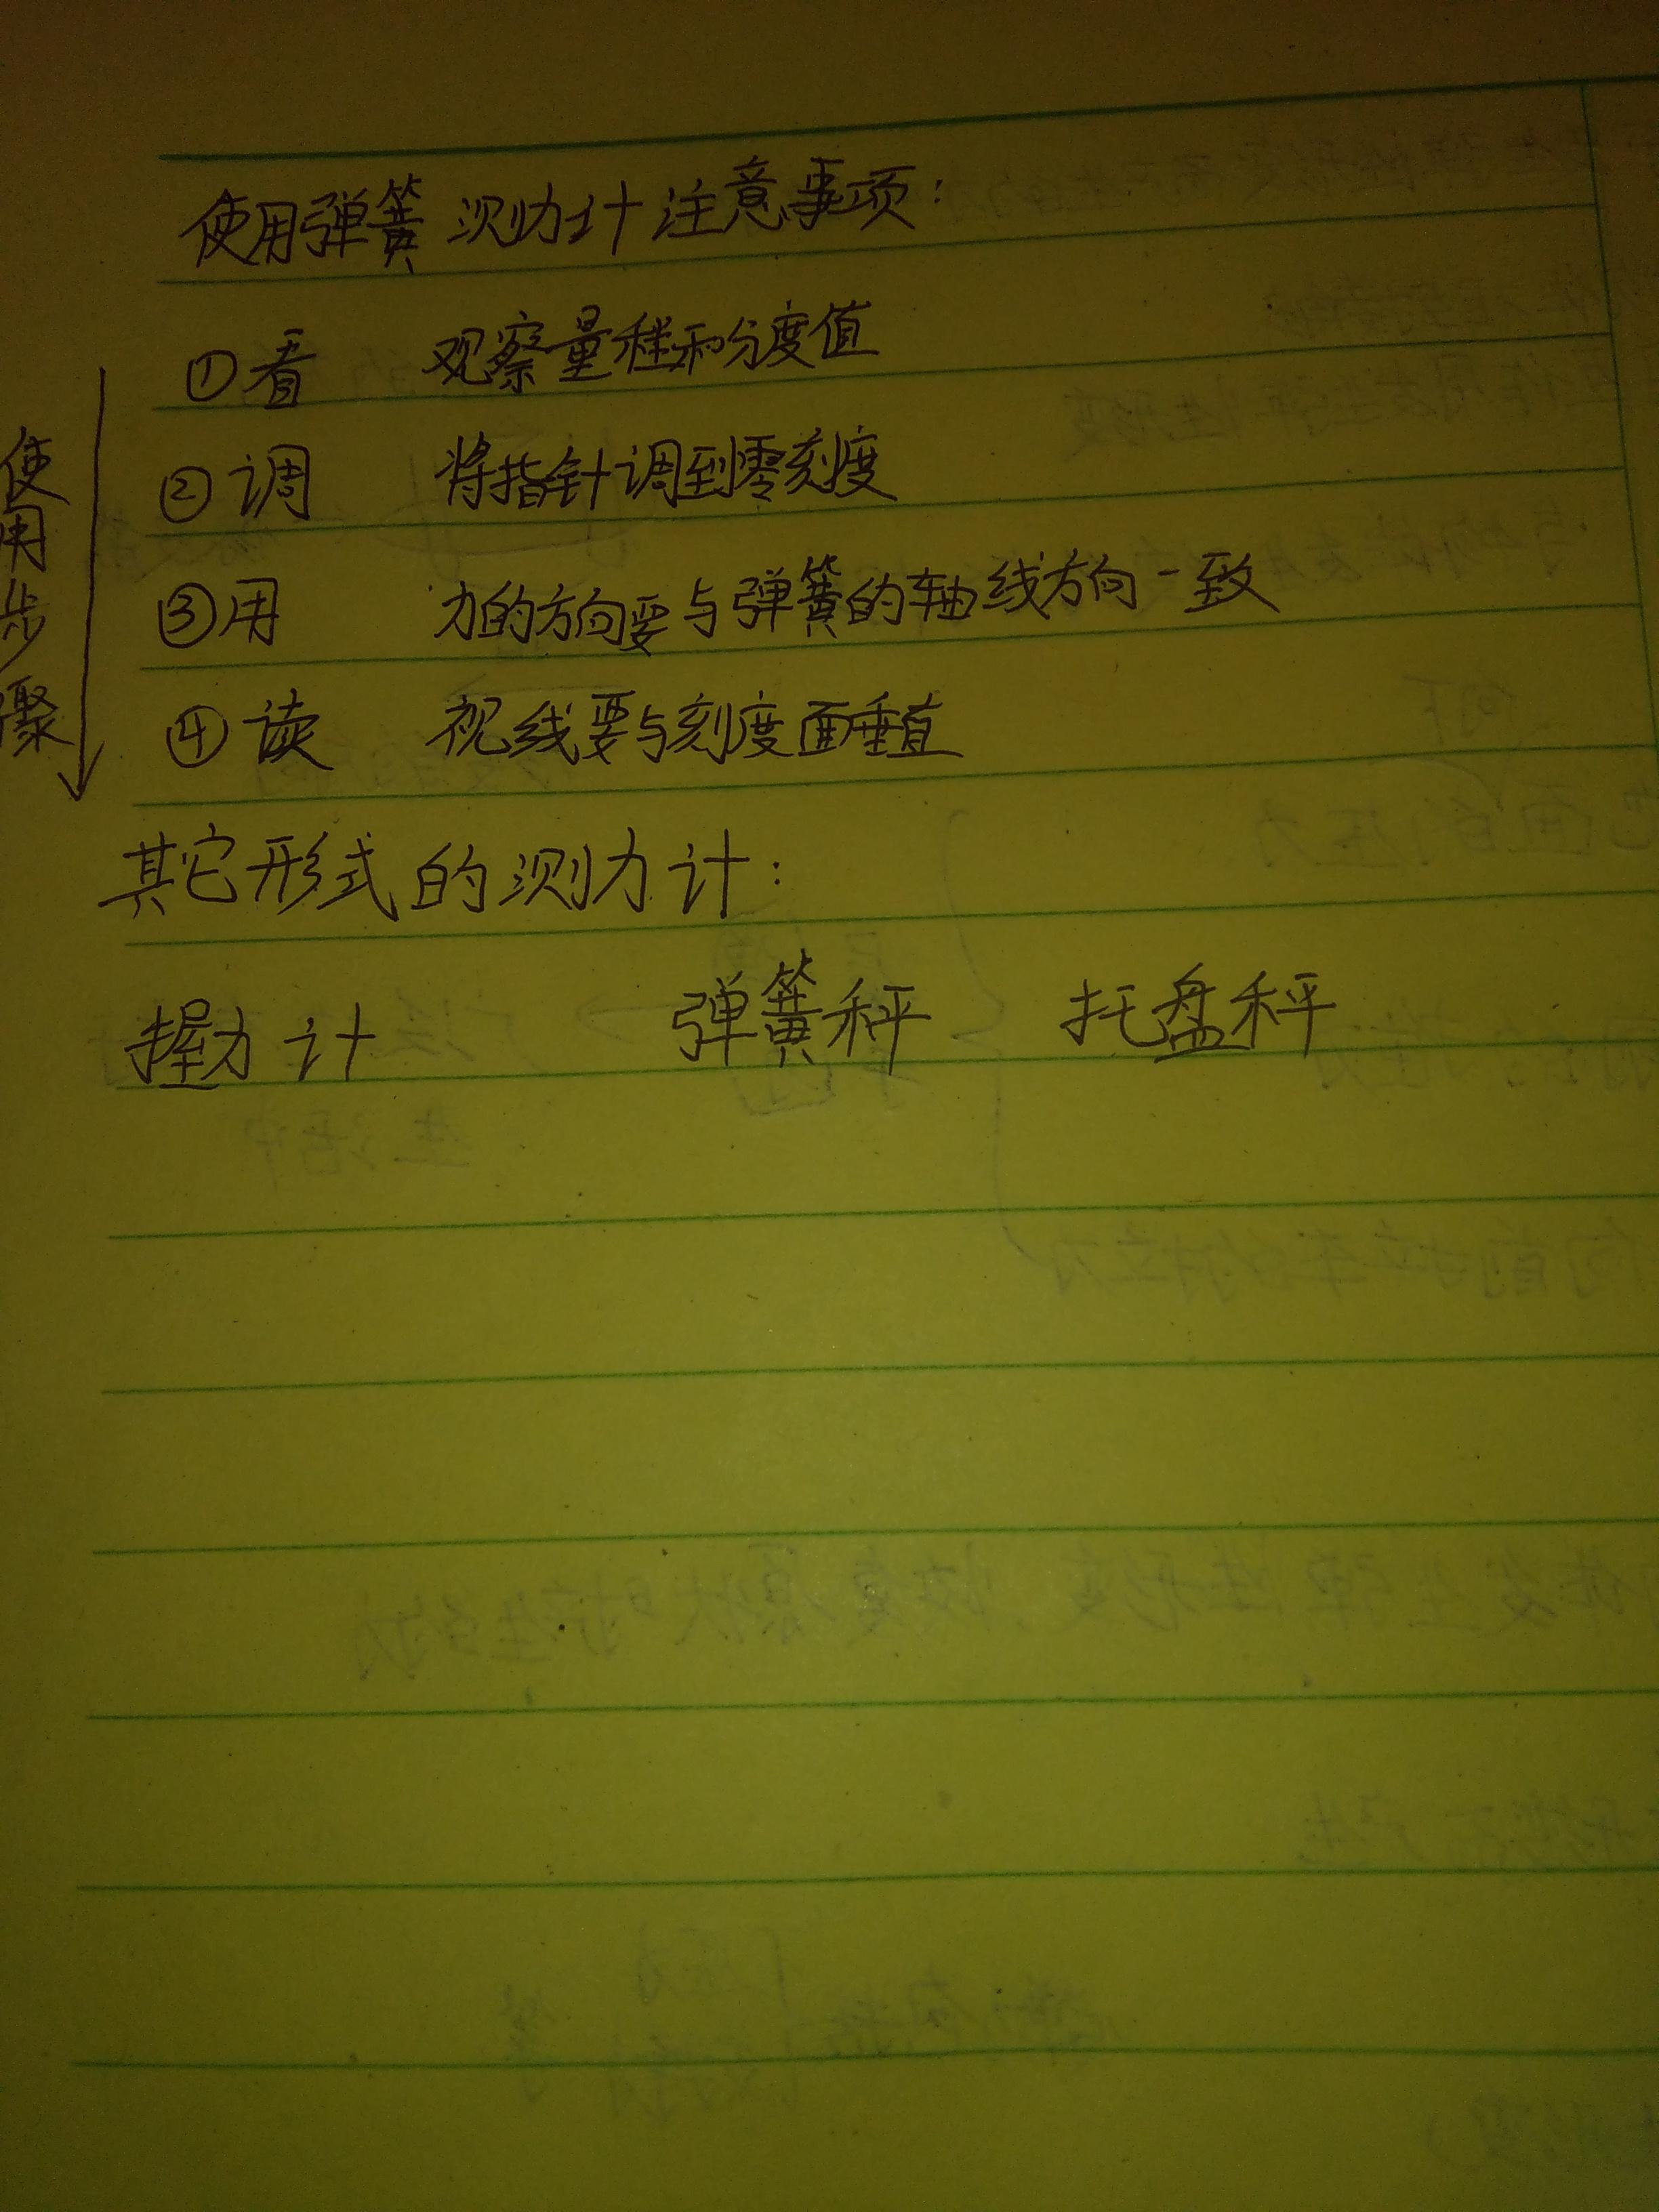 使用弹簧测力计注意事项：
①看 观察量程和分度值
②调 将指针调到零刻度
③用 力的方向要与弹簧的轴线方向一致
④读 视线要与刻度面垂直
使用步骤
其它形式的测力计：
握力计 弹簧秤 托盘秤